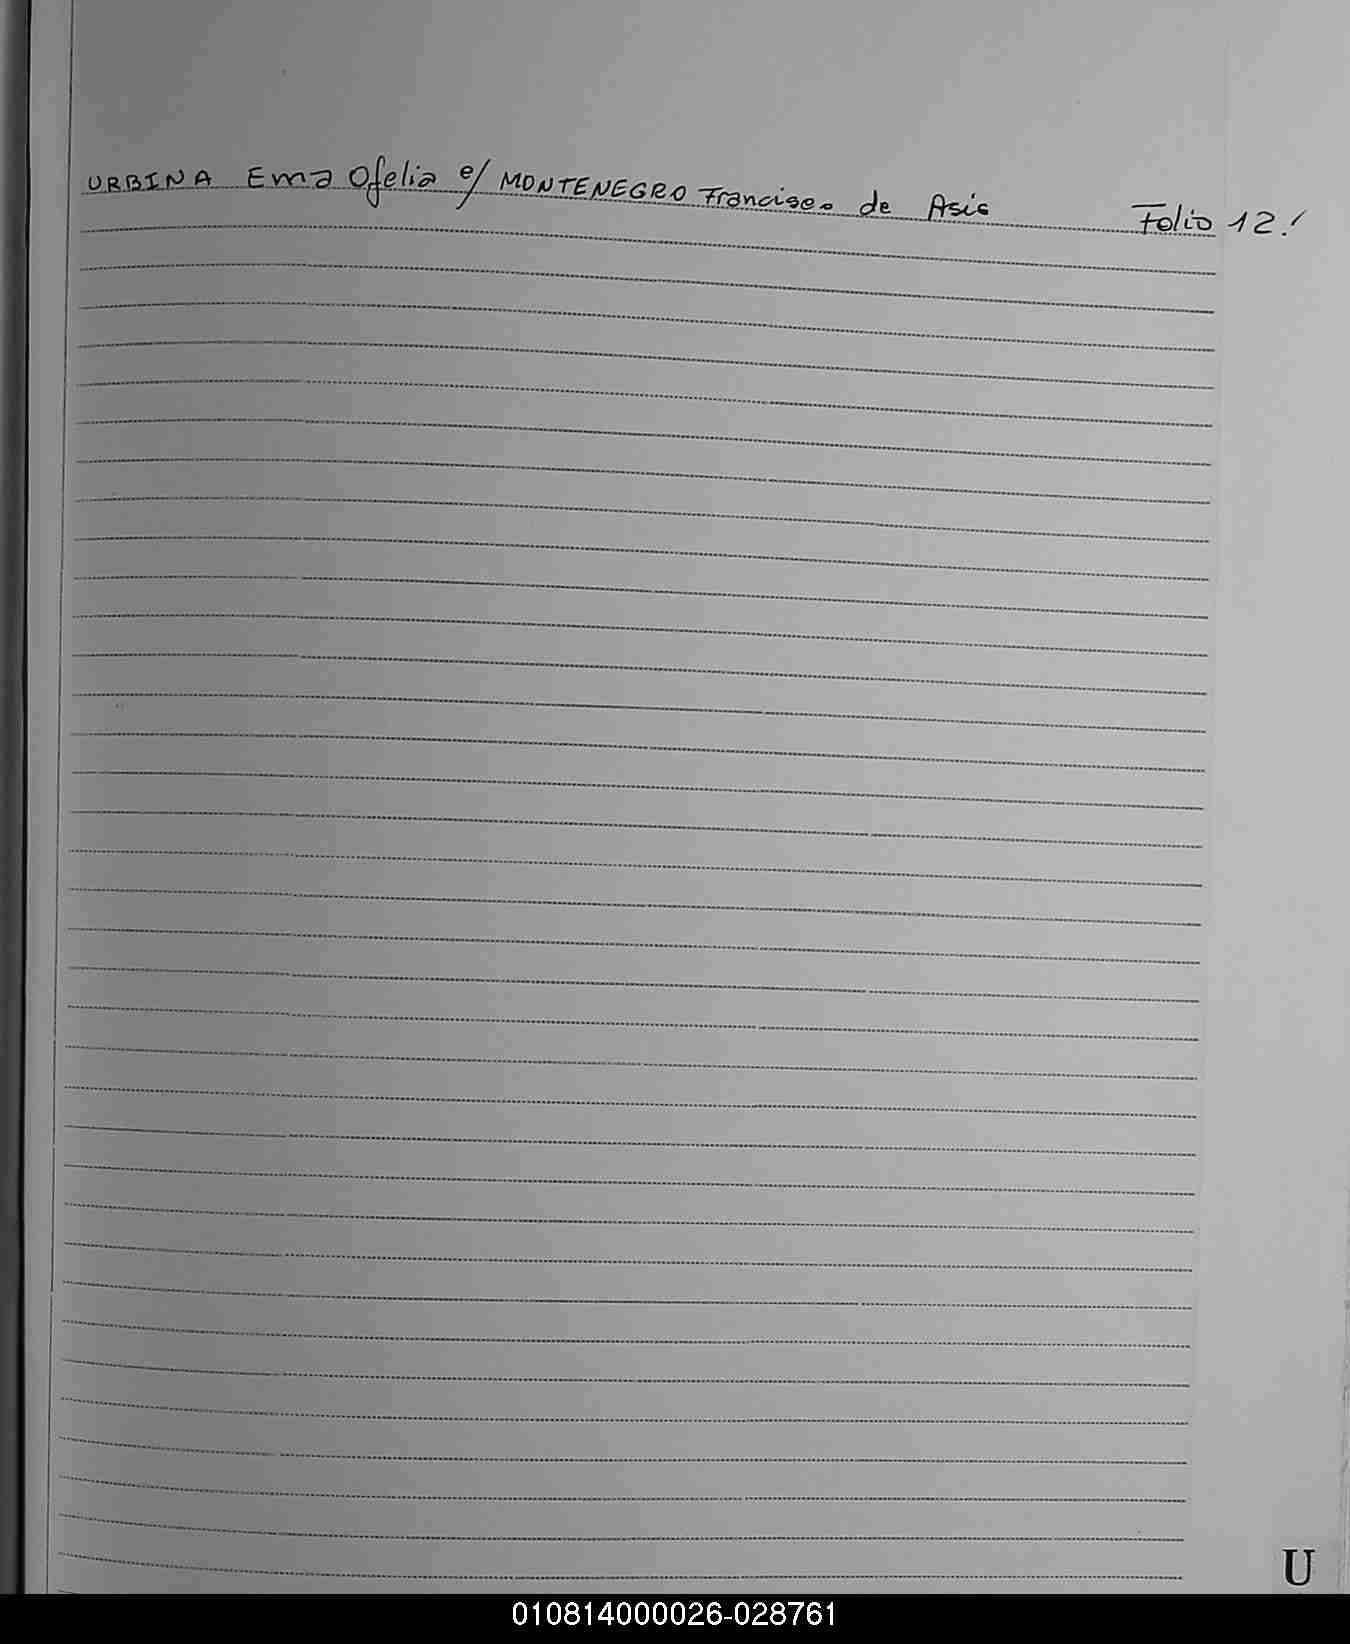 URBINA Ema Ofelia e/ MONTENEGRO Francisco de Asis Folio 12!
U
010814000026-028761